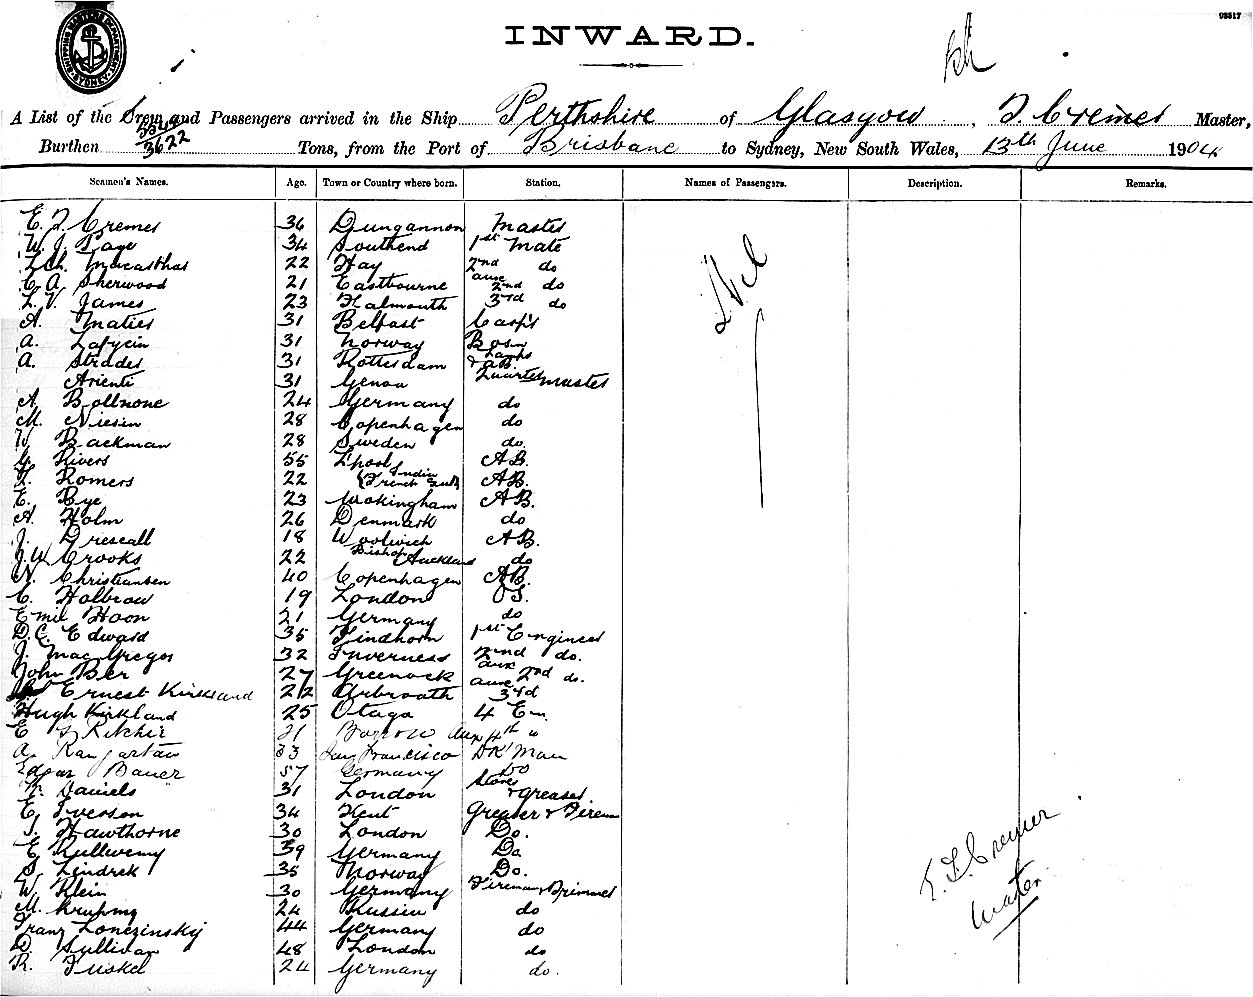 93517
SHIPPING MASTER'S DEPARTMENT SYDNEY
INWARD.
A List of the Crew and Passengers arrived in the Ship Perthshire of Glasgow, Cremer Master,
Burthen 3622 Tons, from the Port of Brisbane to Sydney, New South Wales, 13th June 1904
Seamen's Names. Age. Town or Country where born. Station. Names of Passengers. Description. Remarks.
E. F. Cremer 36 Dungannon Master
W. J. Page 34 Southend 1st Mate
Lch. Macarthur 22 Hay 2nd do
C A Sherwood 21 Eastbourne auxe 2nd do
L. V. James 23 Falmouth 3rd do
A. 31 Belfast Carp'r
A. 31 Norway Bosn
A. 31 Rotterdam Lamps & AB.
Arienti 31 Genoa Quartermaster
A. 24 Germany do
M. 28 Copenhagen do
Backman 28 Sweden do.
G. Rivers 55 L'pool AB.
Romers 22 French India AB.
E. Bye 23 Wokingham AB.
A. Holm 26 Denmark do
J. 18 Woolwich AB.
J. W. Crooks 22 Bishop Auckland do
Christiansen 40 Copenhagen AB.
C. Holbrow 19 London OS.
Emil Hoon 21 Germany do
D. C. Edward 35 Findhorn 1st Engineer
J. MacGregor 32 Inverness 2nd do.
John Ber 27 Greenock aux 2nd do.
Ernest Kirkland 22 Arbroath auxe 3rd
Hugh Kirkland 25 Otago 4 En
E Ritchie 21 Barrow Aux 4th
A. 33 San Francisco DK Man
Edgar Bauer 57 Germany Do
Daniels 31 London Stores & Greaser
E. Iverson 34 Kent Greaser & Firem
Hawthorne 30 London Do.
E 39 Germany Do
S. 35 Norway Do.
W. Klein 30 Germany Fireman & Trimmer
M. 24 Russia do
Franz 44 Germany do
D. Sullivan 48 London do
R. 24 Germany do.
Nil
E. F. Cremer
Master